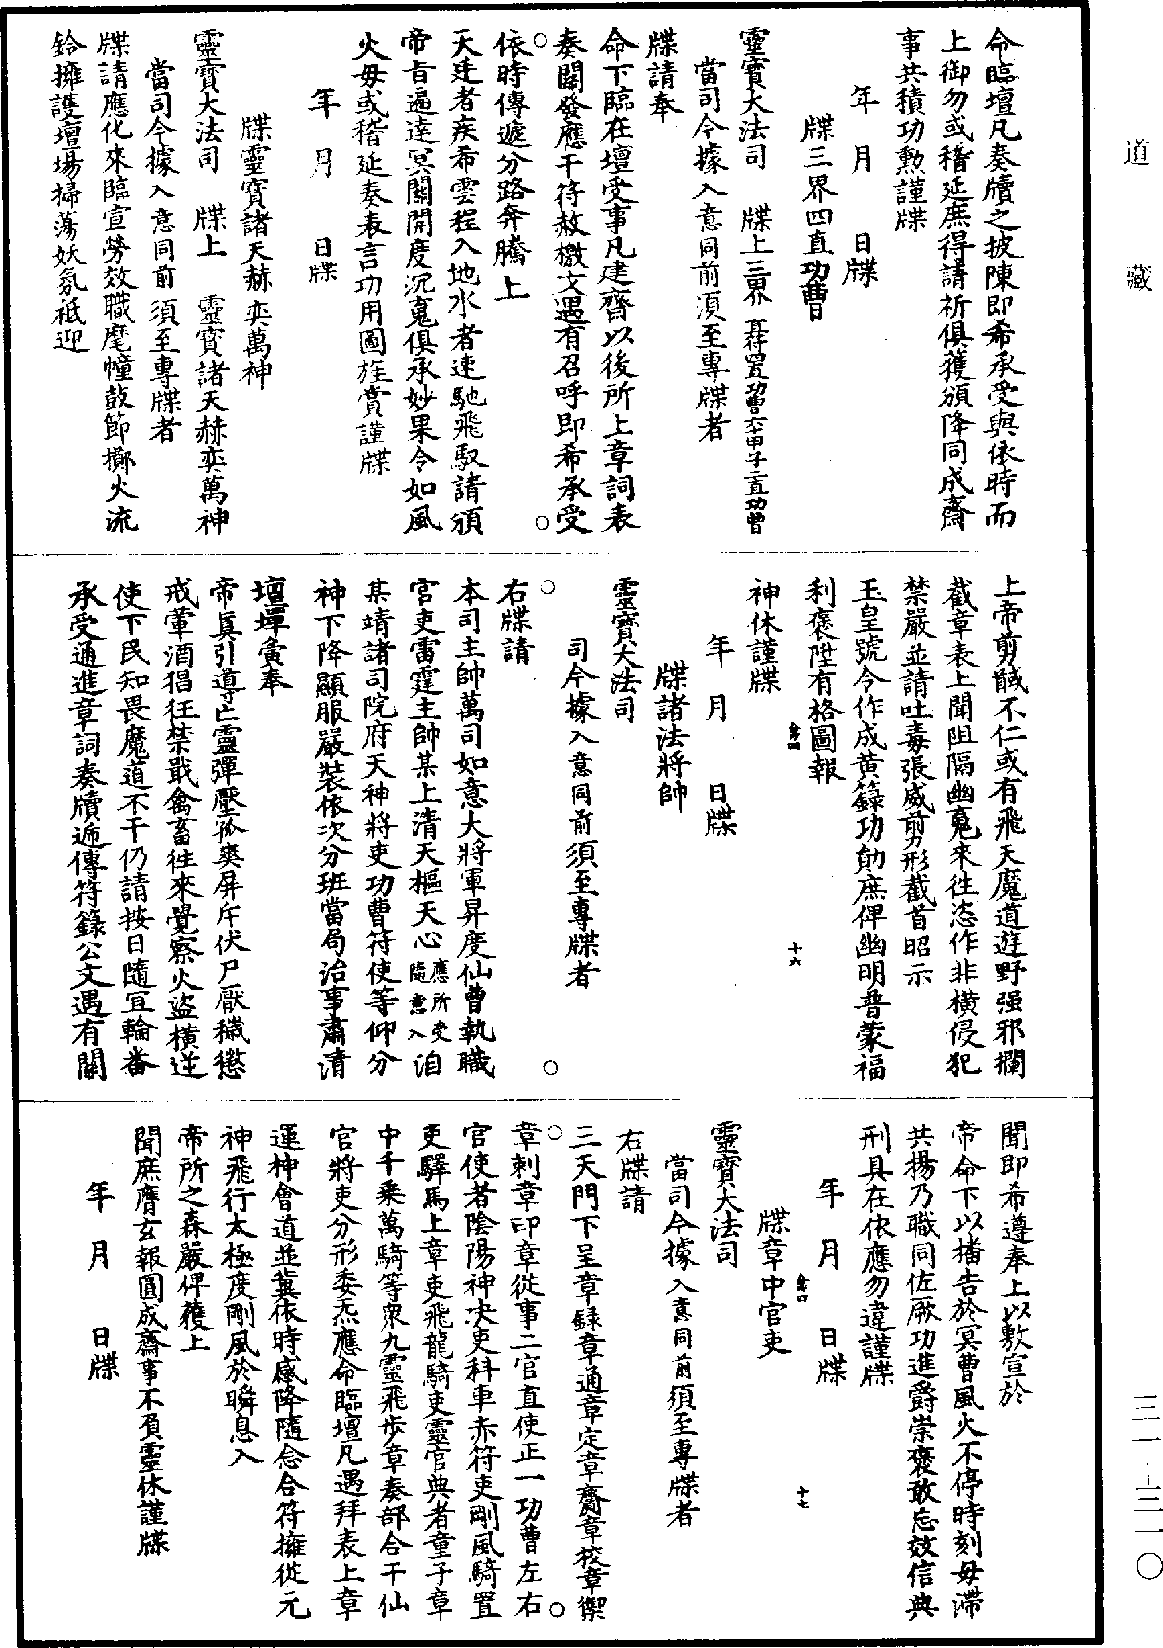 道藏
命臨壇凡奏牘之披陳即希承受與依時而
上御勿或稽延庶得請祈俱獲頒降同成齋
事共積功勲謹牒
年　月　日牒
牒三界四直功曹
靈寳大法司　牒上三界直符四直功曹六甲子直功曹
當司今據入意同前須至專牒者
牒請奉
命下臨在壇受事凡建齋以後所上章詞表
奏關發應干符赦檄文遇有召呼即希承受
依時傳遞分路奔騰上
天廷者疾希雲程入地水者速馳飛馭請頒
帝旨遍達冥關開度沉䰟俱承妙果令如風
火毋或稽延奏表言功用圖旌賞謹牒
年　月　日牒
牒靈寳諸天赫奕萬神
靈寳大法司　牒上　靈寳諸天赫奕萬神
當司今據入意同前須至專牒者
牒請應化來臨宣勞效職麾幢鼓節擲火流
鈴擁護壇場掃蕩妖氛祗迎
上帝剪馘不仁或有飛天魔道遊野强邪攔
截章表上聞阻隔幽䰟來往恣作非橫侵犯
禁嚴並請吐毒張威剪形截首昭示
玉皇號令作成黄籙功勛庶俾幽明普蒙福
利褒陞有格圖報
神休謹牒
年　月　日牒
牒諸法將帥
靈寳大法司
司今據入意同前須至專牒者
右牒請
本司主帥萬司如意大將軍昇度仙曹執職
官吏雷霆主帥某上清天樞天心應所受隨意入洎
某靖諸司院府天神將吏功曹符使等仰分
神下降顯服嚴裝依次分班當局治事肅清
壇墠賔奉
帝眞引導亡靈彈壓孤爽屏斥伏尸厭穢懲
戒葷酒猖狂禁戢禽畜徃來覺察火盜橫逆
使下民知畏魔道不干仍請按日隨宜輪番
承受通進章詞奏牘遞傳符籙公文遇有關
十六
聞即希遵奉上以敷宣於
帝命下以播告於冥曹風火不停時刻毋滯
共揚乃職同佐厥功進爵崇褒敢忘效信典
刑具在依應勿違謹牒
年　月　日牒
牒章中官吏
靈寳大法司
當司今據入意同前須至專牒者
右牒請
三天門下呈章錄章通章定章齎章校章禦
章刺章印章從事二官直使正一功曹左右
官使者陰陽神决吏科車赤符吏剛風騎置
吏驛馬上章吏飛龍騎吏靈官典者童子章
中千乘萬騎等衆九靈飛步章奏部合干仙
官將吏分形委炁應命臨壇凡遇拜表上章
運神會道並冀依時感降隨念合符擁從元
神飛行太極度剛風於瞬息入
帝所之森嚴俾獲上
聞庶膺玄報圓成齋事不負靈休謹牒
年　月　日牒
十七
三一-三一〇